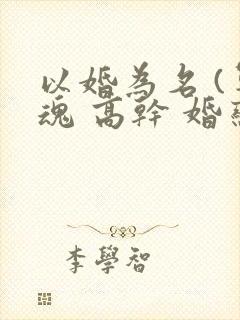 以婚為名(
魂 高幹 婚
李學智